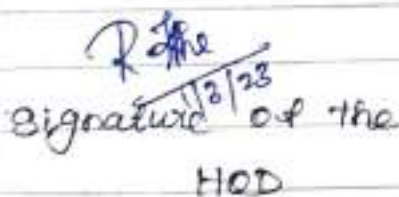 1/3/23
signature of the
HOD